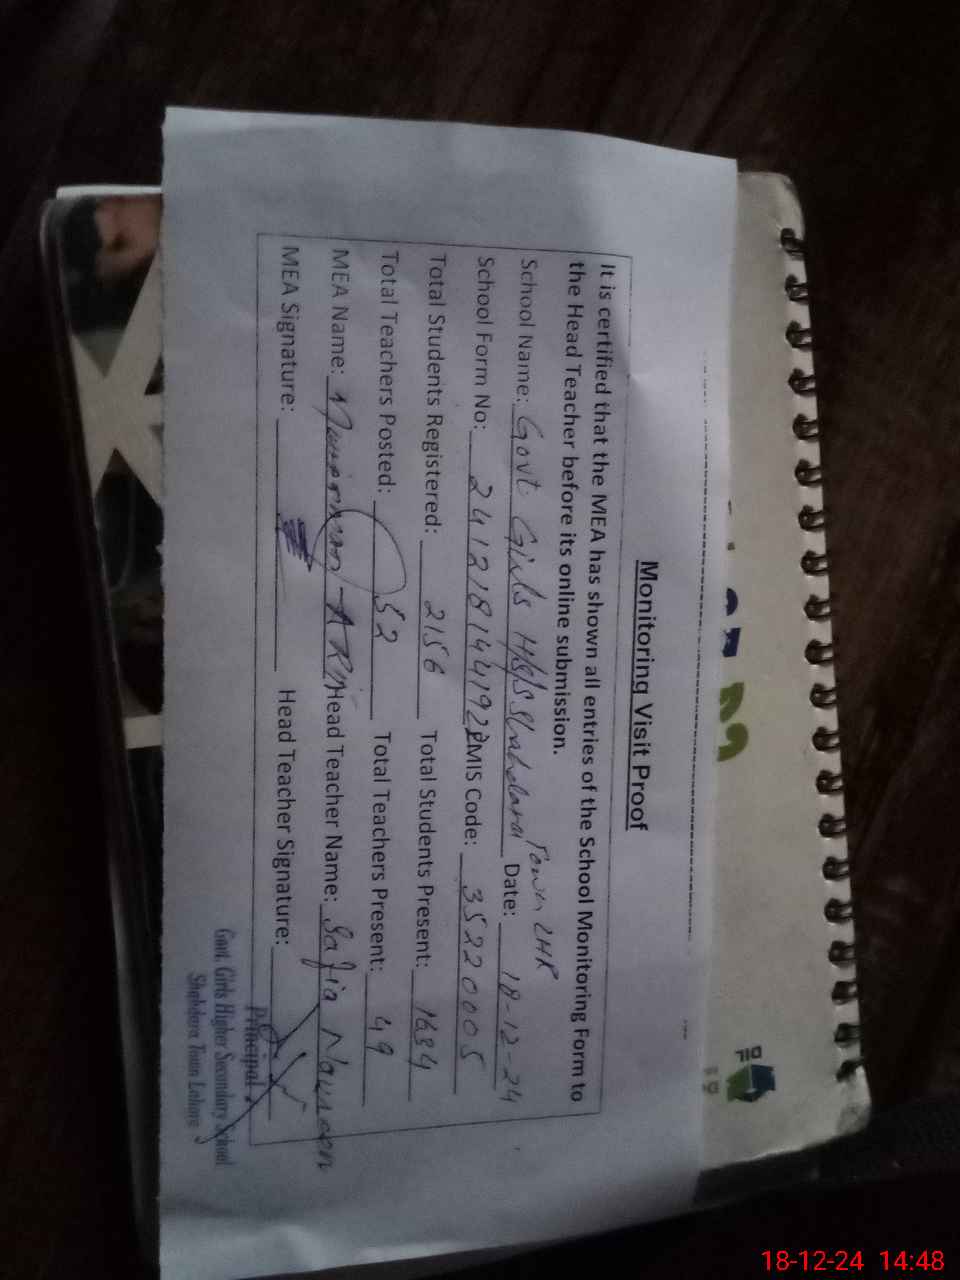 Monitoring Visit Proof
It is certified that the MEA has shown all entries of the School Monitoring Form to
the Head Teacher before its online submission.
School Name: Govt Girls H/S/S Shahdara Town LHR Date: 18-12-24
School Form No: 24121814419 EMIS Code: 35220005
Total Students Registered: 2156 Total Students Present: 1684
Total Teachers Posted: 52 Total Teachers Present: 49
MEA Name: Head Teacher Name: Safia Nouseen
MEA Signature: Head Teacher Signature:
Principal
Govt. Girls Higher Secondary School
Shahdara Town Lahore
18-12-24 14:48